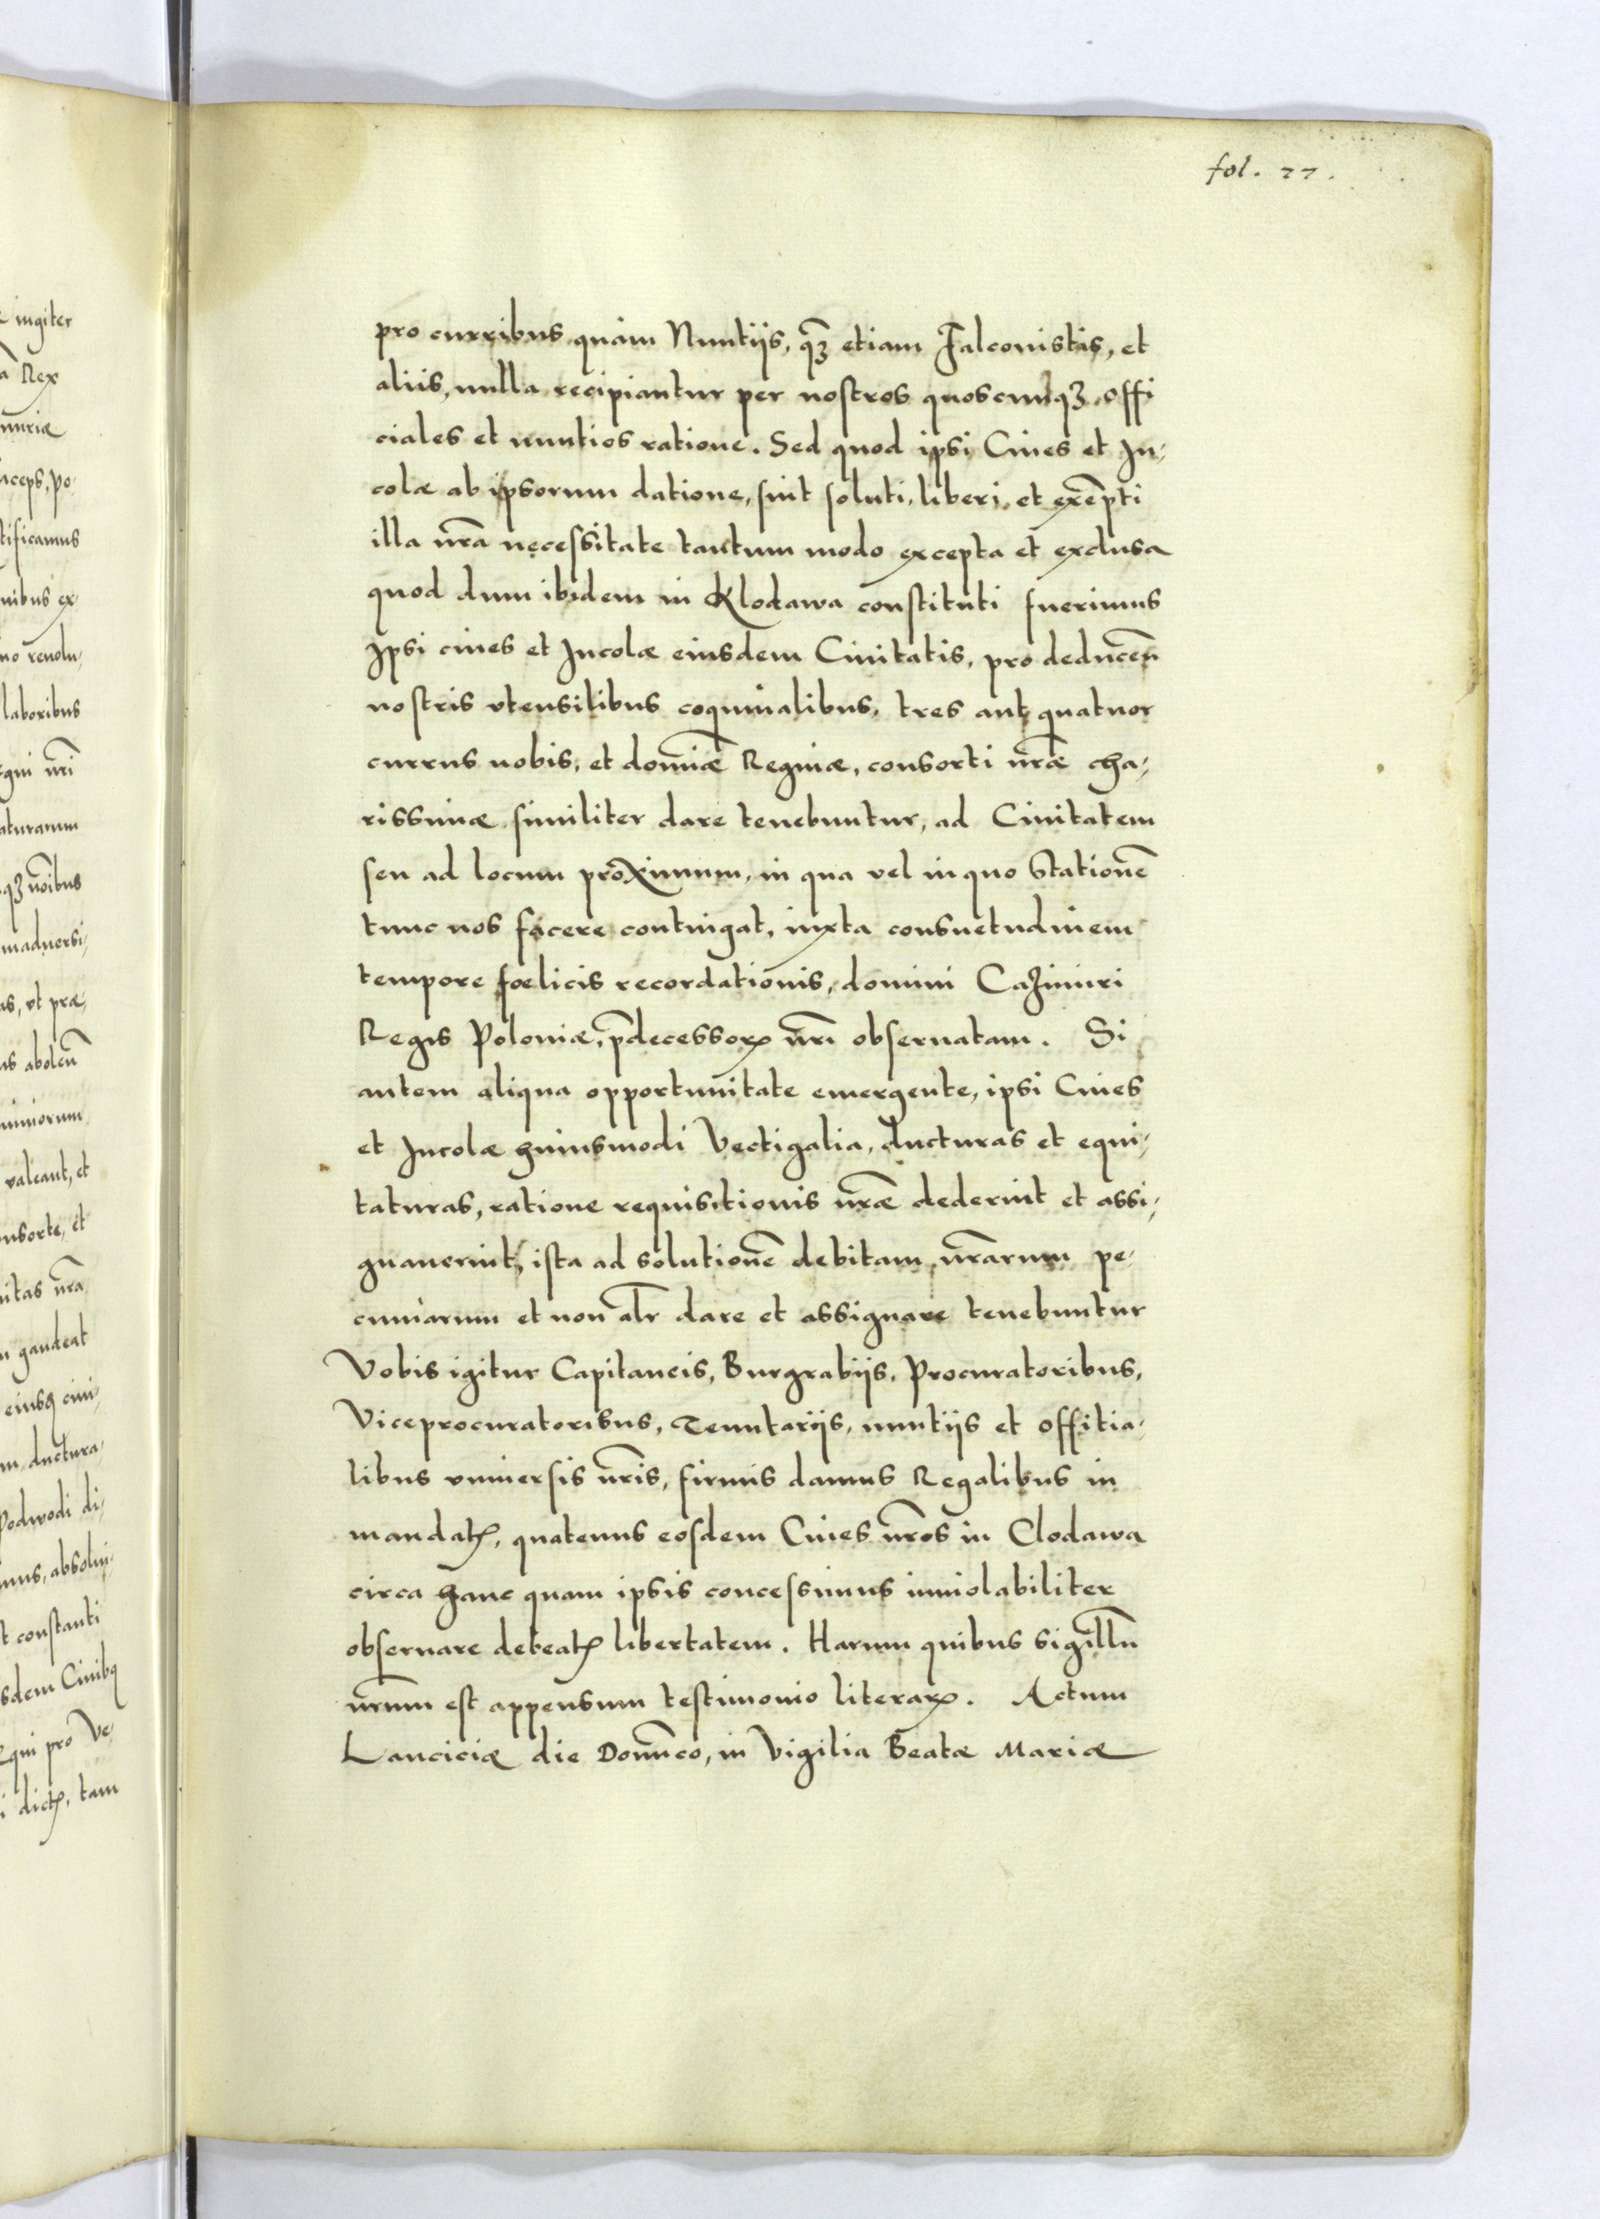 fol. 77.
pro curribus quàm Nuntijs, qꝫ etiam Falconistis, et
aliis, nulla recipiantur per nostros quoscunqꝫ offi
ciales et nuntios ratione. Sed quod ipsi Ciues et In-
colæ ab ipsorum datione, sint soluti, liberi, et exẽpti
illa nr̃a necessitate tantum modo excepta et exclusa
quod dum ibidem in Klodawa constituti fuerimus
Ipsi ciues et Incolæ eiusdem Ciuitatis, pro deducen̄
nostris vtensilibus coquinalibus, tres aut quatuor
currus nobis, et domĩæ Reginæ, consorti nr̃æ cha-
rissimæ similiter dare tenebuntur, ad Ciuitatem
seu ad locum proximum, in qua vel in quo Stationẽ
tunc nos facere contingat, iuxta consuetudinem
tempore fœlicis recordationis, domini Cazimiri
Regis Poloniæ, p̃decessorꝝ nr̃i obseruatam. Si
autem aliqua opportunitate emergente, ipsi Ciues
et Incolæ huiusmodi Vectigalia, ducturas et equi-
taturas, ratione requisitionis nr̃æ dederint et assi-
gnauerint, ista ad solutionẽ debitam, nr̃arum pe-
cuniarum et non alr̃ dare et assignare tenebuntur
Vobis igitur Capitaneis, Burgrabijs, Procuratoribus,
Viceprocuratoribus, Tenutarijs, nuntijs et offitia-
libus vniuersis nr̃is, firmis damus Regalibus in
mandatꝭ, quatenus eosdem Ciues nr̃os in Clodawa
circa hanc quam ipsis concessimus inuiolabiliter
obseruare debeatꝭ libertatem. Harum quibus sigillũ
nr̃um est appensum testimonio literarꝝ. Actum
Lanciciæ die Domĩco, in Vigilia Beatæ Mariæ
iugiter
Rex
laboribus
gaudeat
Podwodi di-
absolui-
constanti
Ciuibꝫ
pro Ve-
dictꝭ, tam